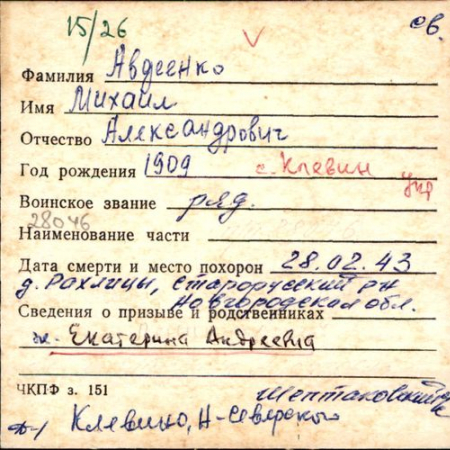 15/26 св.
Фамилия Авдеенко
Имя Михаил
Отчество Александрович
Год рождения 1909 с. Клевин
Воинское звание ряд. укр
28046
Наименование части
Дата смерти и место похорон 28.02.43
д. Рахлицы, Старорусский р-н
Новгородской обл.
Сведения о призыве и родственниках
ж. Екатерина Андреевна
ЧКПФ з. 151
Шептаковский
Клевино, Н-Северского